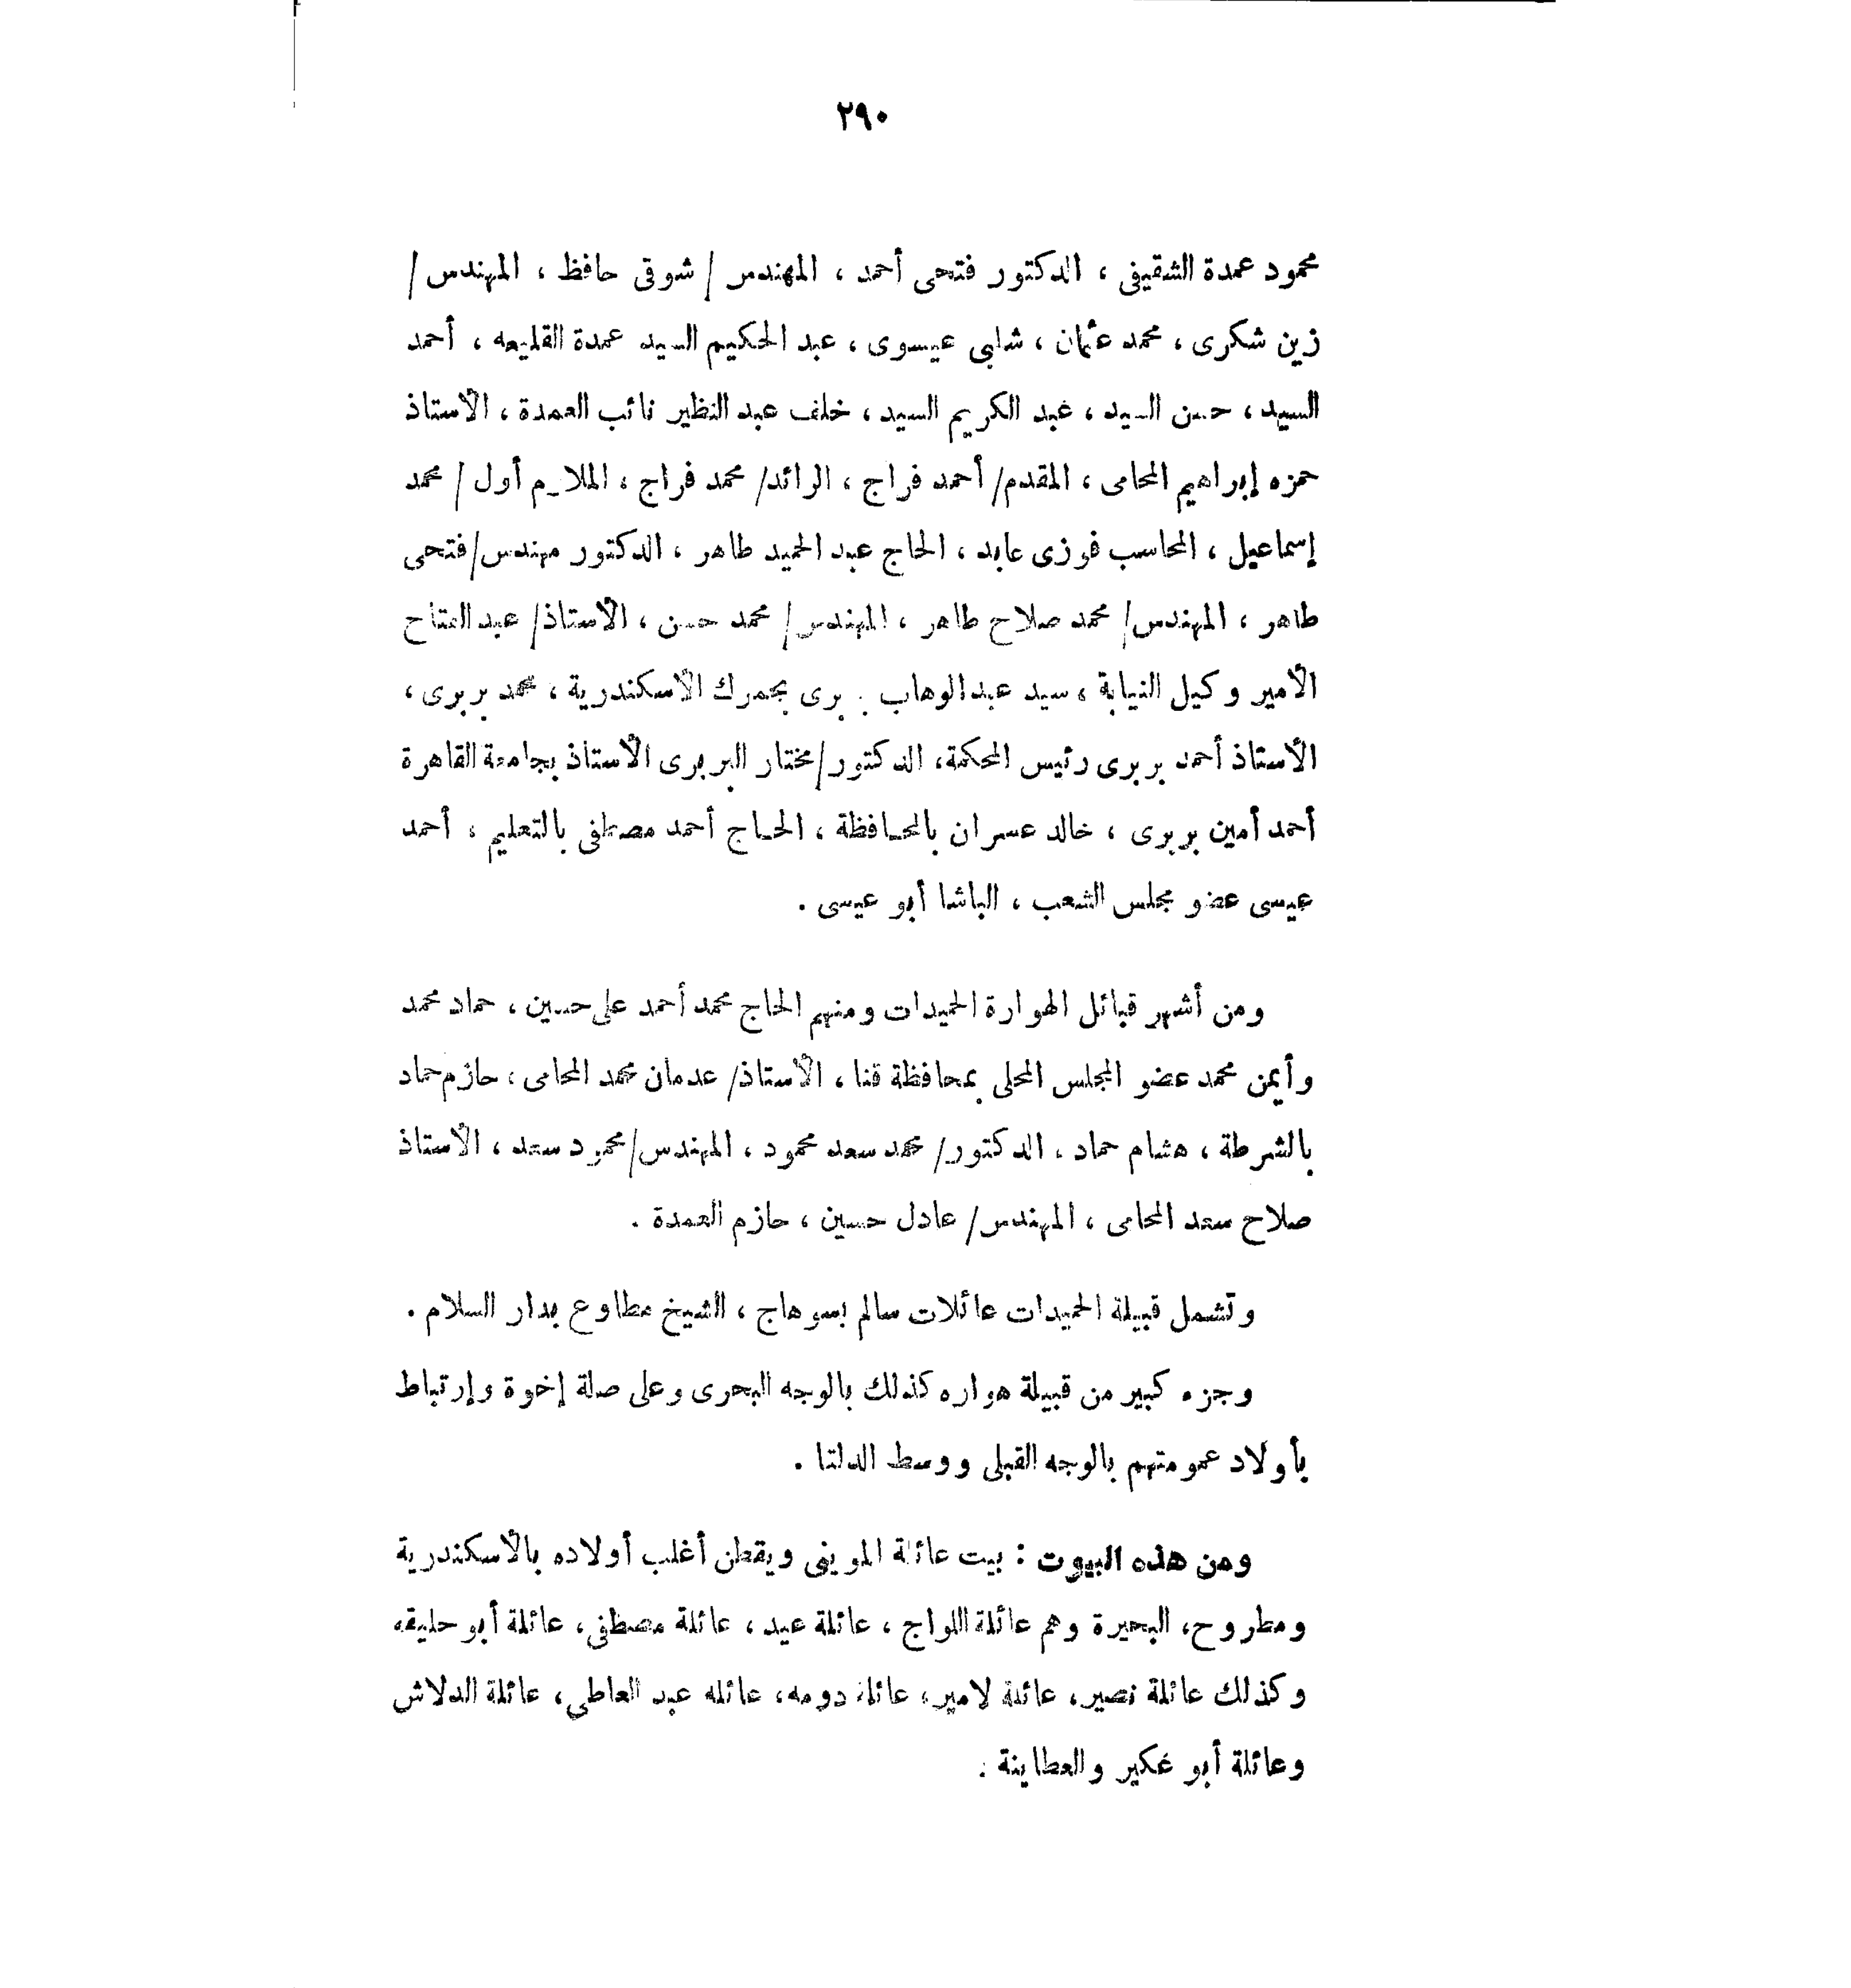 ٢٩٠
محمود عمدة الشقيفى ، الدكتور فتحى أحمد ، المهندس / شوقى حافظ ، المهندس /
زين شكرى ، محمد عثمان ، شلبى عيسوى ، عبد الحكيم السيد عمدة القليعه ، أحمد
السيد ، حسن السيد ، عبد الكريم السيد ، خلف عبد النظير نائب العمدة ، الأستاذ
حمزه إبراهيم المحامى ، المقدم/ أحمد فراج ، الرائد/ محمد فراج ، الملازم أول / محمد
إسماعيل ، المحاسب فوزى عابد ، الحاج عبد الحميد طاهر ، الدكتور مهندس/فتحى
طاهر ، المهندس/ محمد صلاح طاهر ، المهندس/ محمد حسن ، الأستاذ/ عبد الفتاح
الأمير وكيل النيابة ، سيد عبدالوهاب بربرى بجمرك الأسكندرية ، محمد بربرى ،
الأستاذ أحمد بربرى رئيس المحكمة، الدكتور/مختار البربرى الأستاذ بجامعة القاهرة
أحمد أمين بربرى ، خالد عسران بالمحافظة ، الحاج أحمد مصطفى بالتعليم ، أحمد
عيسى عضو مجلس الشعب ، الباشا أبو عيسى .
ومن أشهر قبائل الهوارة الحميدات ومنهم الحاج محمد أحمد على حسين ، حماد محمد
وأيمن محمد عضو المجلس المحلى بمحافظة قنا ، الأستاذ/ عدمان محمد المحامى ، حازم حماد
بالشرطة ، هشام حماد ، الدكتور/ محمد سعد محمود ، المهندس/محمود سعد ، الأستاذ
صلاح سعد المحامى ، المهندس/ عادل حسين ، حازم العمدة .
وتشمل قبيلة الحميدات عائلات سالم بسوهاج ، الشيخ مطاوع بدار السلام .
وجزء كبير من قبيلة هواره كذلك بالوجه البحرى وعلى صلة إخوة وإرتباط
بأولاد عمومتهم بالوجه القبلى ووسط الدلتا .
ومن هذه البيوت : بيت عائلة الموينى ويقطن أغلب أولاده بالأسكندرية
ومطروح، البحيرة وهم عائلة اللواج ، عائلة عيد ، عائلة مصطفى، عائلة أبو حليقه
وكذلك عائلة نصير، عائلة لامير، عائلة دومه، عائله عبد العاطى، عائلة الدلاش
وعائلة أبو عكير والعطاينة .